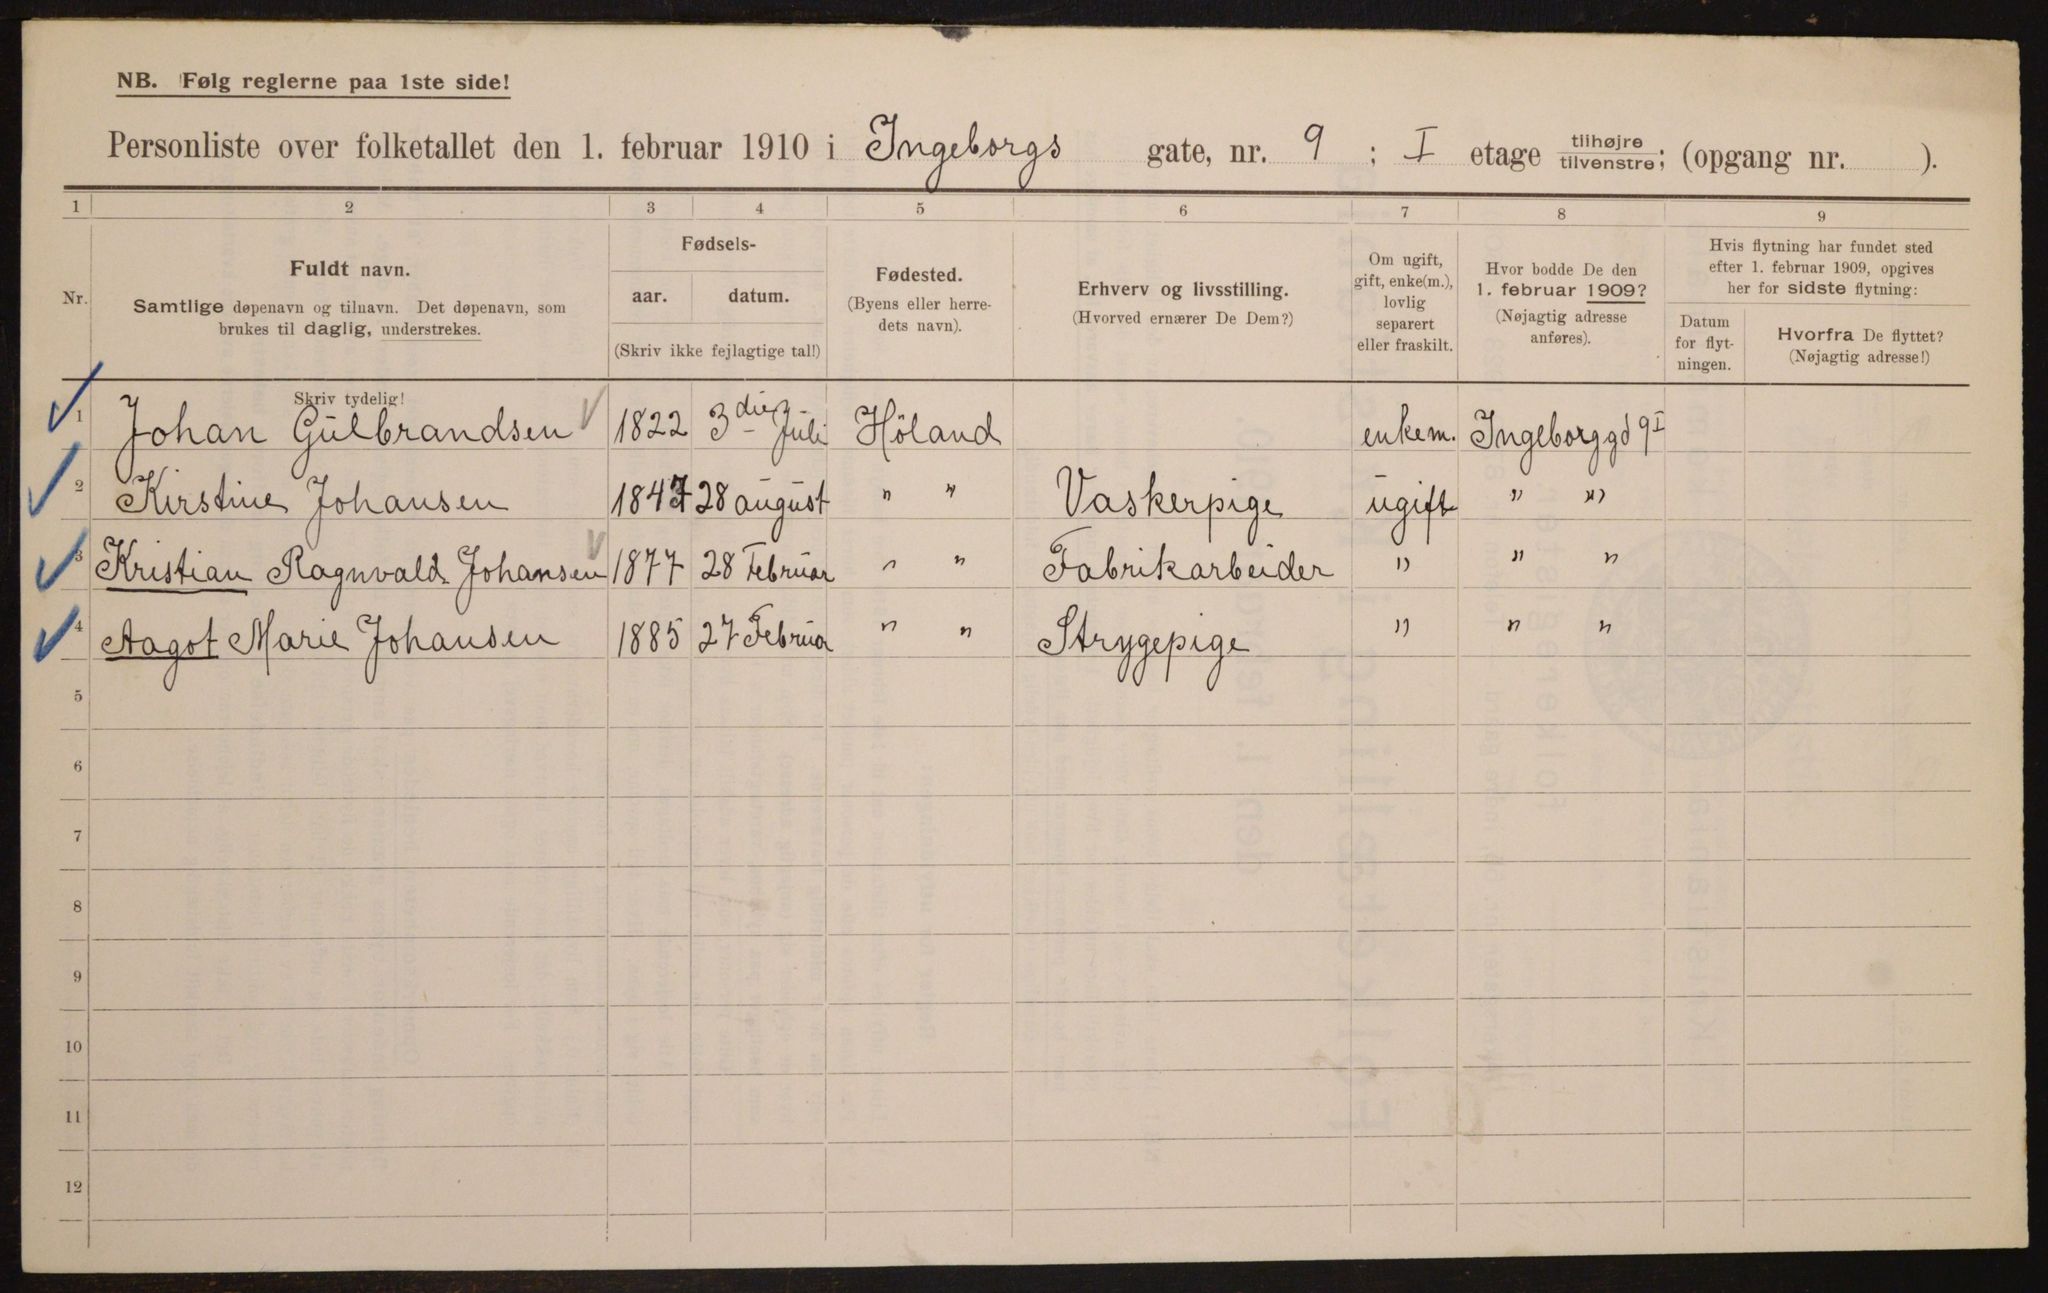 NB. Følg reglerne paa 1ste side!
Personliste over folketallet den 1. februar 1910 i Ingeborgs gate, nr. 9 ; I etage tilhøjre tilvenstre; (opgang nr. ).
1 2 3 4 5 6 7 8 9
Nr.
Fuldt navn.
Samtlige døpenavn og tilnavn. Det døpenavn, som
brukes til daglig, understrekes.
Fødsels-
aar. datum.
(Skriv ikke fejlagtige tal!)
Fødested.
(Byens eller herre-
dets navn).
Erhverv og livsstilling.
(Hvorved ernærer De Dem?)
Om ugift,
gift, enke(m.),
lovlig
separert
eller fraskilt.
Hvor bodde De den
1. februar 1909?
(Nøjagtig adresse
anføres).
Hvis flytning har fundet sted
efter 1. februar 1909, opgives
her for sidste flytning:
Datum
for flyt-
ningen.
Hvorfra De flyttet?
(Nøjagtig adresse!)
Skriv tydelig!
1 Johan Gulbrandsen 1822 3die Juli Höland enkem. Ingeborggd 9 I
2 Kirstine Johansen 1847 28 august " " Vaskerpige ugift " "
3 Kristian Ragnvald Johansen 1877 28 Februar " " Fabrikarbeider " " "
4 Aagot Marie Johansen 1885 27 Februar " " Strygepige " " "
5
6
7
8
9
10
11
12